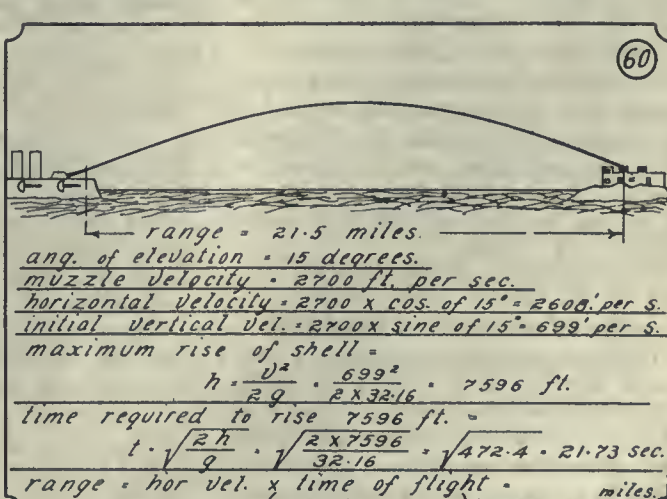 60
range = 21.5 miles.
ang. of elevation = 15 degrees.
muzzle velocity = 2700 ft. per sec.
horizontal velocity = 2700 x cos. of 15° = 2608' per s.
initial vertical vel. = 2700 x sine of 15° = 699' per s.
maximum rise of shell =
h = v²/2g = 699²/2 x 32.16 = 7596 ft.
time required to rise 7596 ft. =
t = √2h/g = √2 x 7596/32.16 = √472.4 = 21.73 sec.
range = hor vel. x time of flight = miles